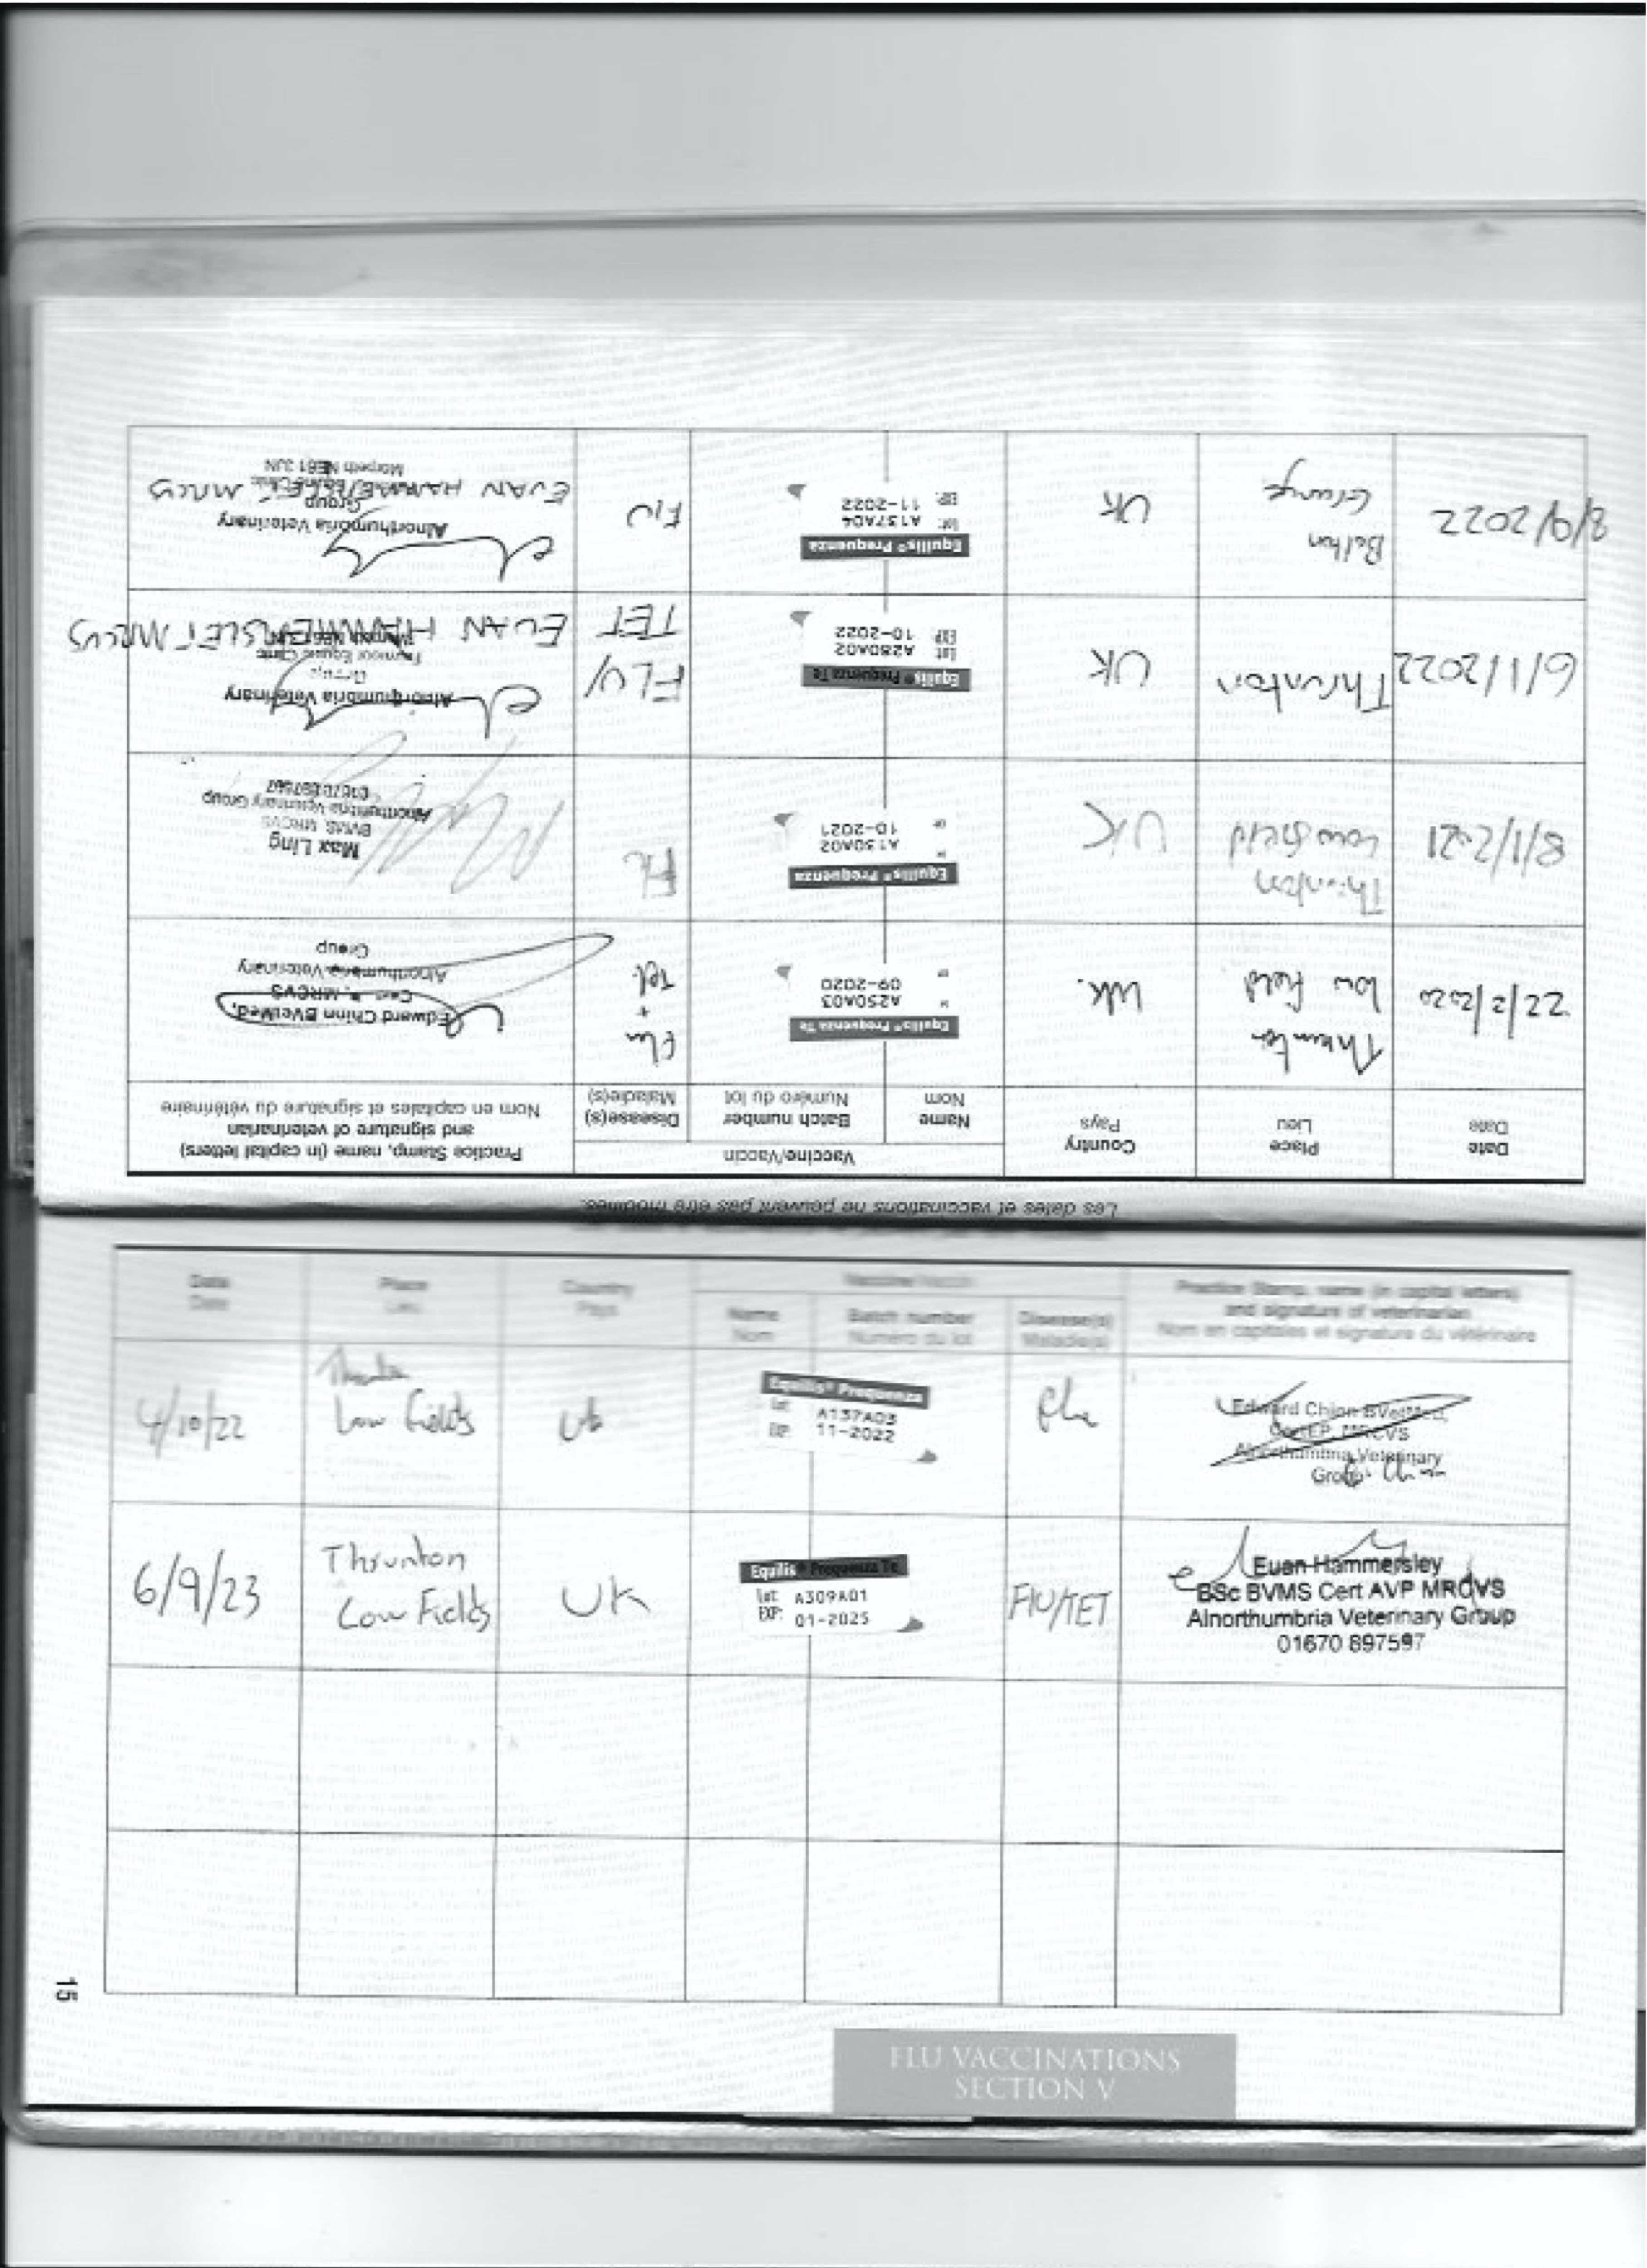 Les dates et vaccinations ne peuvent pas être modifiées.
Date
Date
Place
Lieu
Country
Pays
Vaccine/Vaccin
Name
Nom
Batch number
Numéro du lot
Disease(s)
Maladie(s)
Practice Stamp, name (in capital letters)
and signature of veterinarian
Nom en capitales et signature du vétérinaire
22/2/2020
Thrunton
low field
UK.
Equilis® Prequenza Te
A250A03
09-2020
Flu
+
Tet.
Edward Chinn BVetMed,
MRCVS
Alnorthumbria Veterinary
Group
8/1/2021
Thrunton
Lowfield
UK
Equilis® Prequenza
A130A02
10-2021
Max Ling
BVMS, MRCVS
Alnorthumbria Veterinary Group
01670 897597
6/1/2022
Thrunton
UK
Equilis® Prequenza Te
Lot A280A02
EXP 10-2022
FLU/
TET
Alnorthumbria Veterinary
Group
EUAN HAMMERSLEY MRCVS
8/9/2022
Belton
Grange
UK
Equilis® Prequenza
lot: A137A04
EXP: 11-2022
FLU
Alnorthumbria Veterinary
Group
EUAN HAMMERSLEY MRCVS
Morpeth NE61 3JN
Date
Date
Place
Lieu
Country
Pays
Vaccine/Vaccin
Name
Nom
Batch number
Numéro du lot
Disease(s)
Maladie(s)
Practice Stamp, name (in capital letters)
and signature of veterinarian
Nom en capitales et signature du vétérinaire
4/10/22
Low Fields
Uk
Equilis® Prequenza
lot: A137A03
EXP: 11-2022
flu
Edward Chinn BVetMed,
CertEP, MRCVS
Alnorthumbria Veterinary
Group
6/9/23
Thrunton
Low Fields
UK
Equilis® Prequenza Te
lot: A309A01
EXP: 01-2025
FlU/TET
Euan Hammersley
BSc BVMS Cert AVP MRCVS
Alnorthumbria Veterinary Group
01670 897597
15
FLU VACCINATIONS
SECTION V